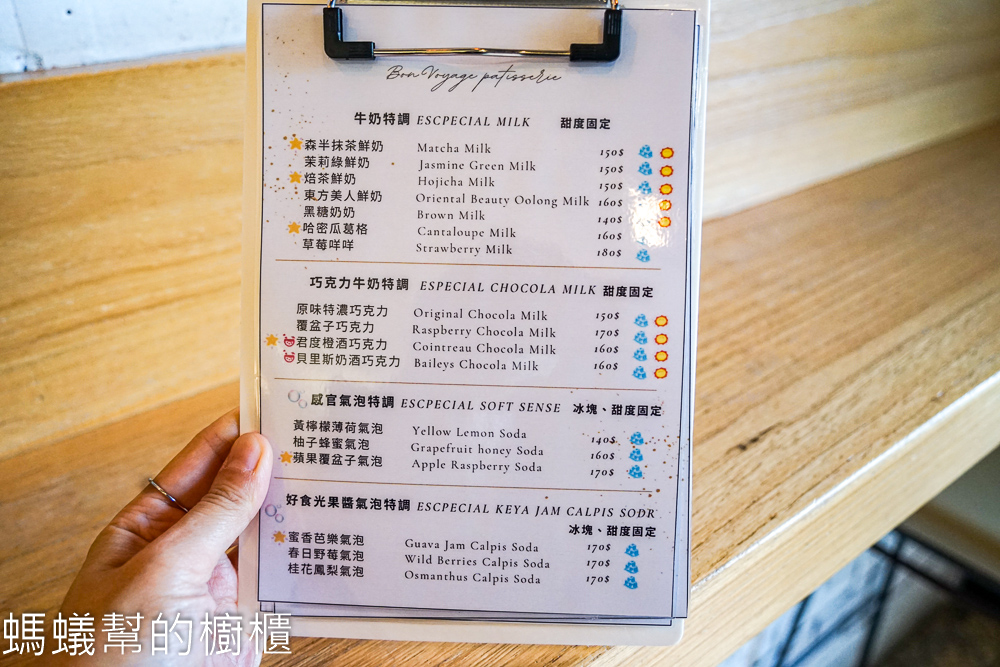 Bon Voyage patisserie
牛奶特調 ESCPECIAL MILK 甜度固定
森半抹茶鮮奶 Matcha Milk 150$
茉莉綠鮮奶 Jasmine Green Milk 150$
焙茶鮮奶 Hojicha Milk 150$
東方美人鮮奶 Oriental Beauty Oolong Milk 160$
黑糖奶奶 Brown Milk 140$
哈密瓜葛格 Cantaloupe Milk 160$
草莓咩咩 Strawberry Milk 180$
巧克力牛奶特調 ESPECIAL CHOCOLA MILK 甜度固定
原味特濃巧克力 Original Chocola Milk 150$
覆盆子巧克力 Raspberry Chocola Milk 170$
君度橙酒巧克力 Cointreau Chocola Milk 160$
貝里斯奶酒巧克力 Baileys Chocola Milk 160$
感官氣泡特調 ESCPECIAL SOFT SENSE 冰塊、甜度固定
黃檸檬薄荷氣泡 Yellow Lemon Soda 140$
柚子蜂蜜氣泡 Grapefruit honey Soda 160$
蘋果覆盆子氣泡 Apple Raspberry Soda 170$
好食光果醬氣泡特調 ESCPECIAL KEYA JAM CALPIS SODR
冰塊、甜度固定
蜜香芭樂氣泡 Guava Jam Calpis Soda 170$
春日野莓氣泡 Wild Berries Calpis Soda 170$
桂花鳳梨氣泡 Osmanthus Calpis Soda 170$
螞蟻幫的櫥櫃